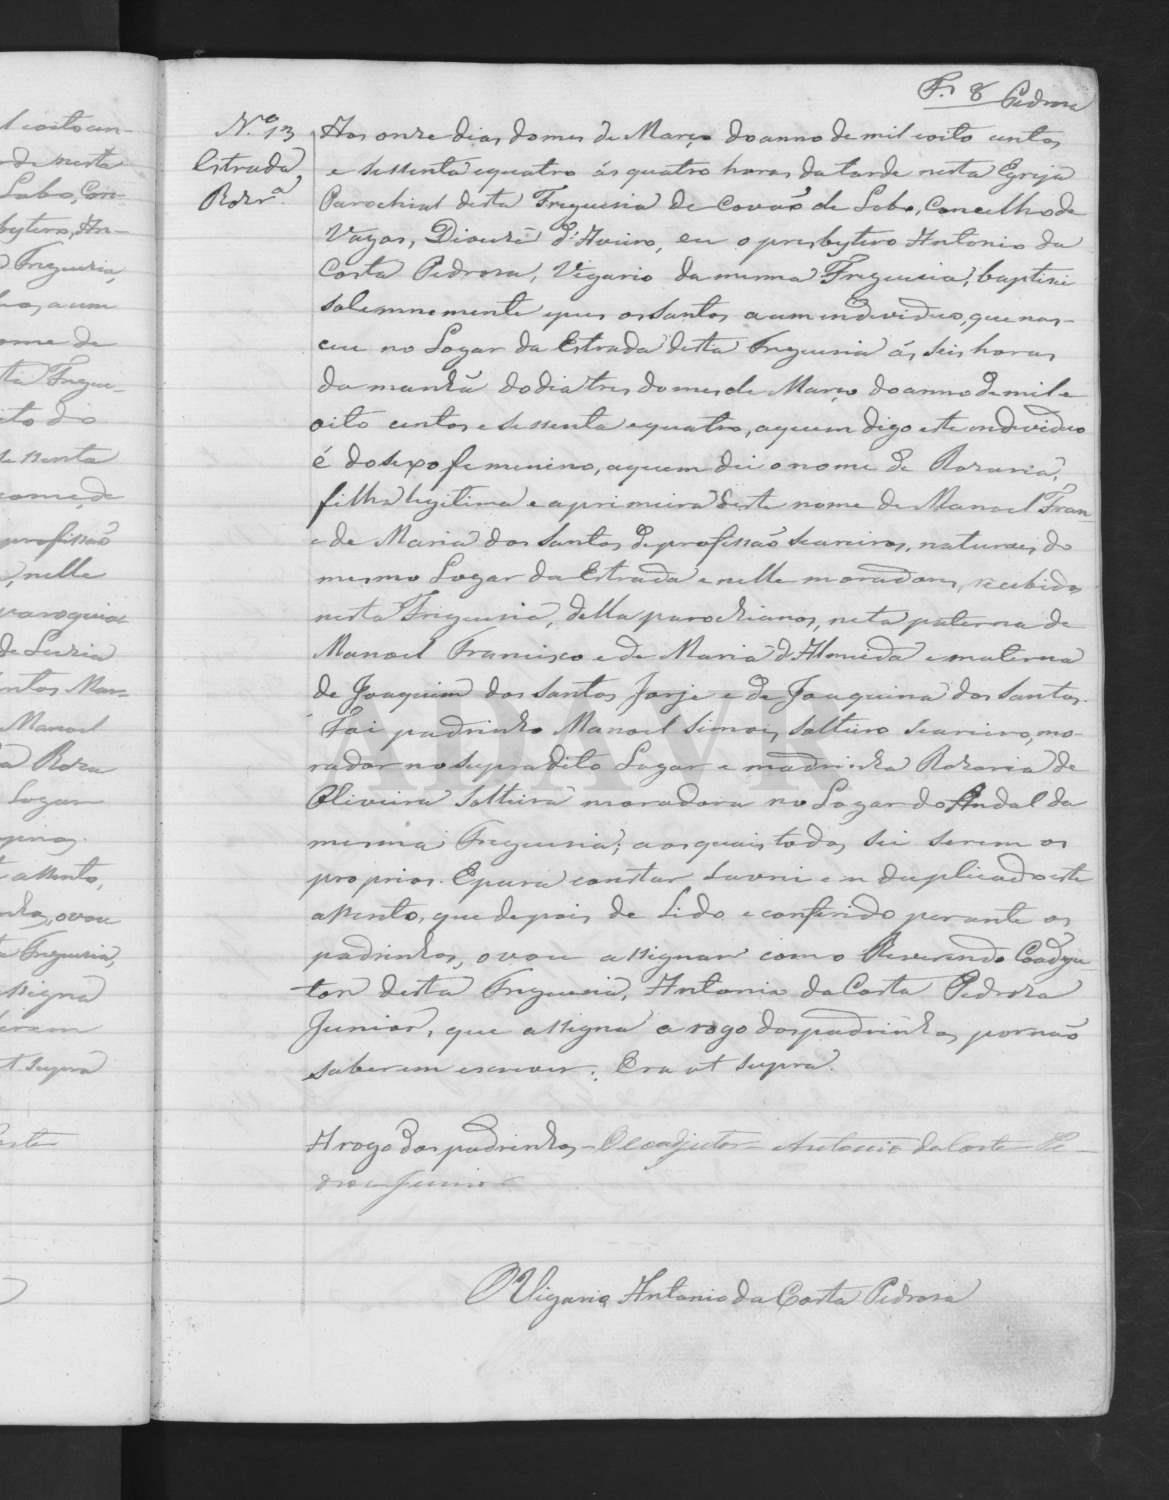 F. 8 Pedrosa
N.º 13
Estrada,
Rozr.ª
Aos onze dias do mes de Março do anno de mil e oito centos
e sessenta e quatro ás quatro horas da tarde nesta Egreja
Parochial desta Freguesia de Covaõ de Lobo, Concelho de
Vagos, Diocese d'Aveiro, eu o presbytero Antonio da
Costa Pedrosa, Vigario da mesma Freguesia, baptisei
solemnemente e pus os santos a um individuo, que nas-
ceu no Logar da Estrada desta Freguesia ás seis horas
da manhã do dia tres do mes de Março do anno de mil e
oito centos e sessenta e quatro, a quem digo este individuo
é do sexo femenino, a quem dei o nome de Rozaria,
filha legitima e a primeira deste nome de Manoel Fran
e de Maria dos Santos de profissaõ seareiros, naturaes do
mesmo Logar da Estrada e nelle moradores, recebidos
nesta Freguesia, della parochianos, neta paterna de
Manoel Francisco e de Maria d'Almeida e materna
de Joaquim dos Santos Jorje e de Joaquina dos Santos.
Foi padrinho Manoel Simoes, solteiro seareiro, mo-
rador no supradito Logar e madrinha Rozaria de
Oliveira solteira moradora no Logar do Andal da
mesma Freguesia; aos quais todos sei serem os
proprios. E para constar lavrei em duplicado este
assento, que depois de lido e conferido perante os
padrinhos, o vou assignar com o Reverendo Coadju
tor desta Freguesia, Antonio da Costa Pedroza
Junior, que assigna a rogo dos padrinhos por naõ
saberem escrever. Era ut supra.
A rogo dos padrinhos - O coadjutor - Antonio da Costa Pe-
droza Junior
O Vigario Antonio da Costa Pedrosa
l e oito cen-
de nesta
Lobo, Con-
bytero, An-
Freguesia,
a um
ome de
ta Fregue-
ito do
sessenta
nome de
profissaõ
, nelle
paroquia
de Luzia
Manoel
a Roza
Logar
assento,
, o vou
Freguesia,
assigna
ut supra
ADAVR